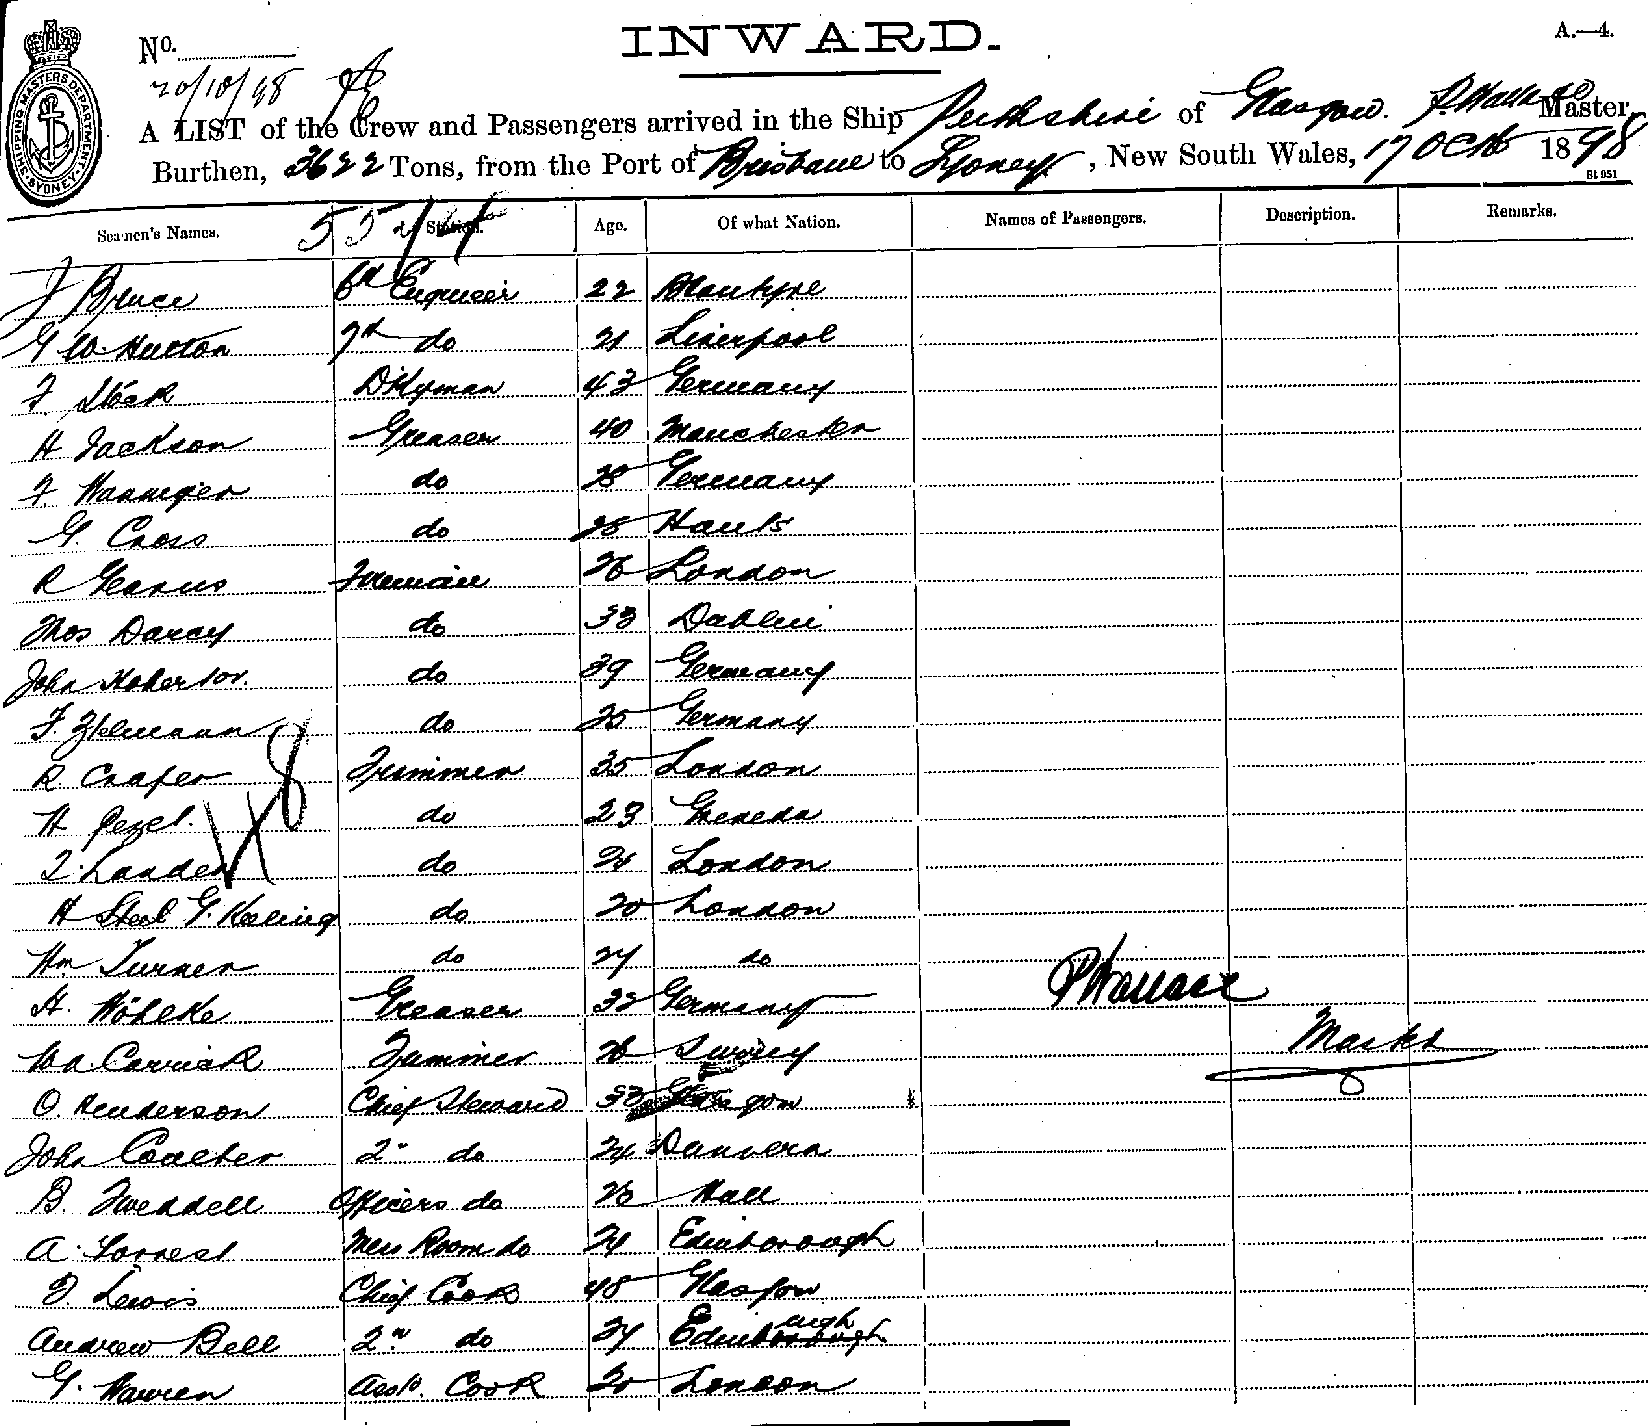 INWARD.
A.—4.
No.
20/10/98
SHIPPING MASTERS DEPARTMENT SYDNEY
A LIST of the Crew and Passengers arrived in the Ship Perthshire of Glasgow. P. Wallace Master,
Burthen, 3622 Tons, from the Port of Brisbane to Sydney, New South Wales, 17 Oct 1898
St 951
55
Seamen's Names. Station. Age. Of what Nation. Names of Passengers. Description. Remarks.
J Bruce 6th Engineer 22 Blantyre
G W. Hutton 7th do 21 Liverpool
F D'Kyman 43 Germany
H Jackson Greaser 40 Manchester
F. do Germany
G. Cross do Hants
R Fireman 26 London
Thos Darcy do 33 Dublin
John do 39 Germany
F. do Germany
R. Trimmer 35 London
H do 23
do London
H Steel G. Keeling do 20 London
Wm Turner do do
H. Wöhlke Greaser 32 Germany
Wm. Carrick Trimmer 26 Surrey
O. Henderson Chief Steward 33 Glasgow
John 2" do
B. Tweddell Officers do Hull
A. Forrest Mess Room do Edinborough
Lewis Chief Cook 48 Glasgow
Andrew Bell 2" do Edinburgh
G. Warren Asst. Cook London
P Wallace
Master
118